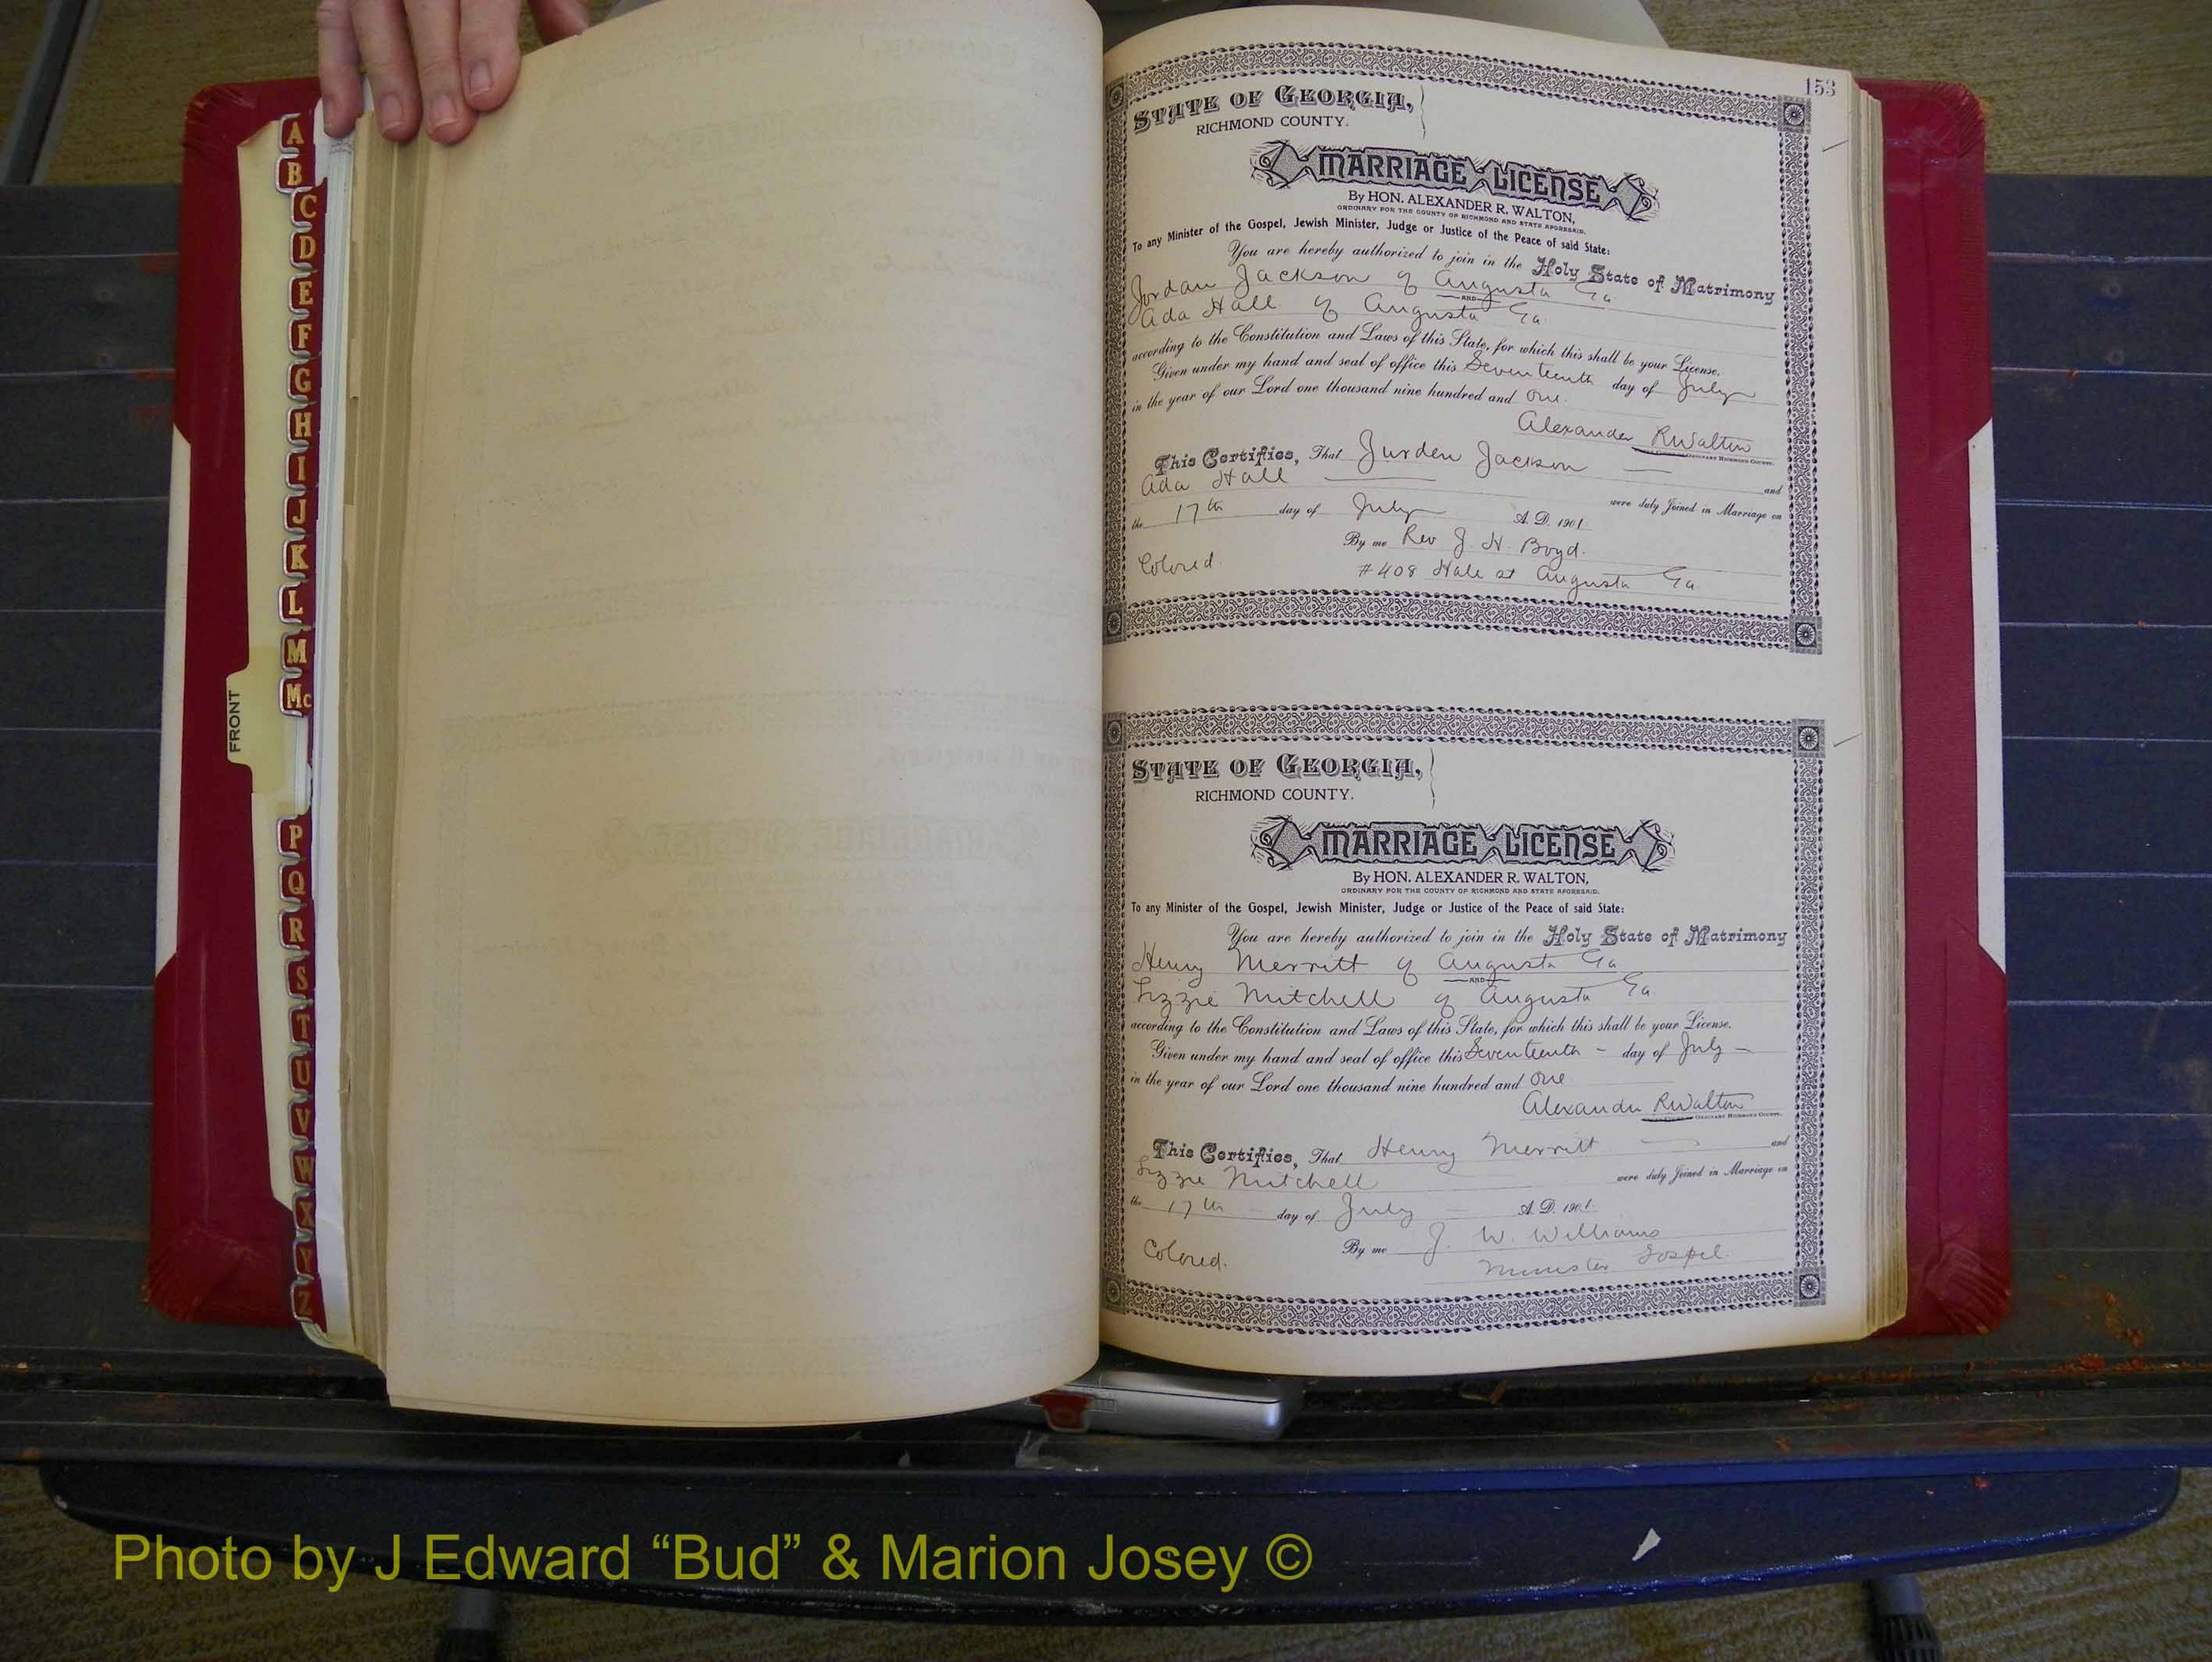 A
B
C
D
E
F
G
H
I
J
K
L
M
Mc
FRONT
P
Q
R
S
T
U
V
W
X
Y
Z
153
STATE OF GEORGIA,
RICHMOND COUNTY.
MARRIAGE LICENSE
By HON. ALEXANDER R. WALTON,
ORDINARY FOR THE COUNTY OF RICHMOND AND STATE AFORESAID.
To any Minister of the Gospel, Jewish Minister, Judge or Justice of the Peace of said State:
You are hereby authorized to join in the Holy State of Matrimony
Jordan Jackson of Augusta Ga
AND
Ada Hall of Augusta Ga
according to the Constitution and Laws of this State, for which this shall be your License.
Given under my hand and seal of office this Seventeenth day of July
in the year of our Lord one thousand nine hundred and One.
Alexander R Walton
ORDINARY RICHMOND COUNTY.
This Certifies, That Jurden Jackson and
Ada Hall were duly Joined in Marriage on
the 17th day of July A. D. 1901.
By me Rev J. H. Boyd.
Colored. #408 Hale st Augusta Ga.
STATE OF GEORGIA,
RICHMOND COUNTY.
MARRIAGE LICENSE
By HON. ALEXANDER R. WALTON,
ORDINARY FOR THE COUNTY OF RICHMOND AND STATE AFORESAID.
To any Minister of the Gospel, Jewish Minister, Judge or Justice of the Peace of said State:
You are hereby authorized to join in the Holy State of Matrimony
Henry Merritt of Augusta Ga
AND
Lizzie Mitchell of Augusta Ga
according to the Constitution and Laws of this State, for which this shall be your License.
Given under my hand and seal of office this Seventeenth - day of July -
in the year of our Lord one thousand nine hundred and One
Alexander R Walton
ORDINARY RICHMOND COUNTY.
This Certifies, That Henry Merritt and
Lizzie Mitchell were duly Joined in Marriage on
the 17th day of July A. D. 1901.
By me J. W. Williams
Colored. Minister Gospel.
Photo by J Edward “Bud” & Marion Josey ©